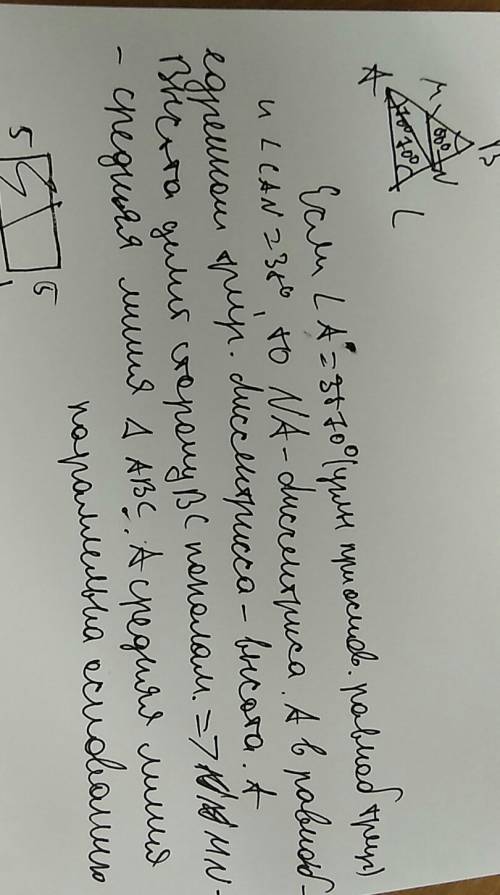 B
M
60°
N
A
70° 70°
C
Если ∠A = 70° (углы при основ. равноб треуг)
и ∠CAN = 35°, то NA - биссектриса. А в равноб-
едренном треуг. биссектрисса - высота. А
высота делит сторону BC пополам. => MN -
- средняя линия △ ABC. А средняя линия
параллельна основанию
5
5